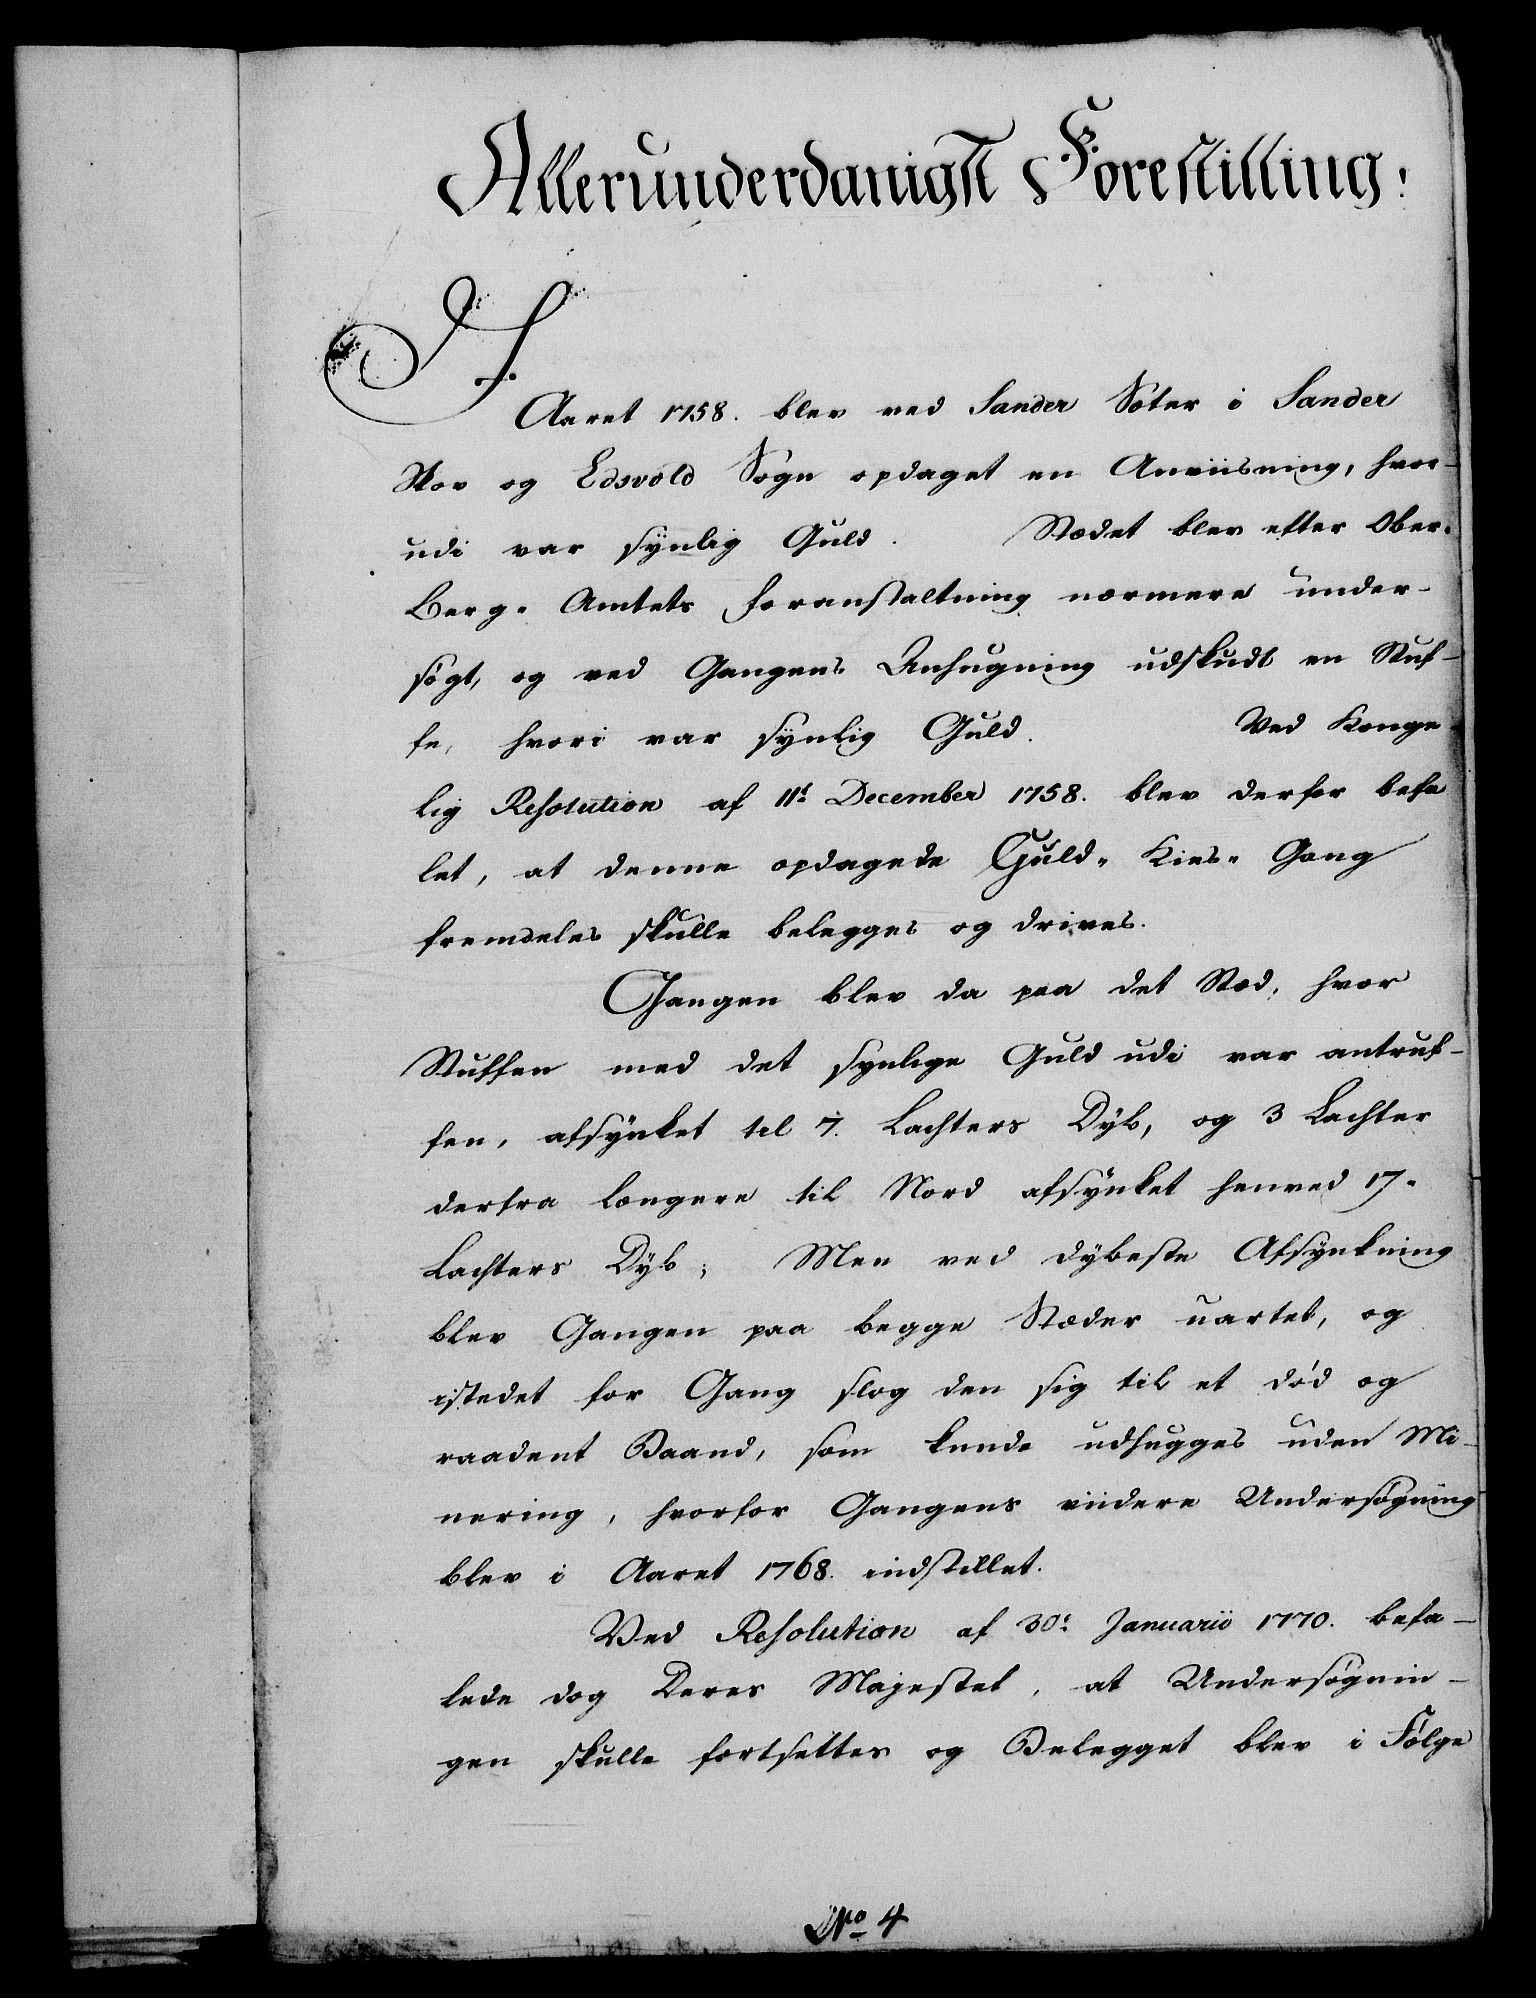 Allerunderdanigst Forestilling.
I
Aaret 1758. blev ved Sander Søter i Sander
Skov og Edsvold Sogn opdaget en Anviisning, hvor-
udi var synlig Guld. Stædet blev efter Ober-
Berg- Amtets Foranstaltning nærmere under-
søgt, og ved Gangens Anhugning udskudt en Stuf-
fe, hvori var synlig Guld. Ved Konge-
lig Resolution af 11t December 1758. blev derfor befa
let, at denne opdagede Guld- Kies- Gang
fremdeles skulle belegges og drives.
Gangen blev da paa det Stæd, hvor
Stuffen med det synlige Guld udi var antruf-
fen, afsynket til 7. Lachters Dyb, og 3 Lachter
derfra længere til Nord afsynket henved 17-
Lachters Dyb; Men ved dybeste Afsynkning
blev Gangen paa begge Stæder uartet, og
istedet for Gang slog den sig til et død og
raadent Baand, som kunde udhugges uden Mi-
nering, hvorfor Gangens viidere Undersøgning
blev i Aaret 1768. indstillet.
Ved Resolution af 30t Januarii 1770. befa-
lede dog Deres Majestet, at Undersøgnin-
gen skulle fortsettes og Belegget blev i Følge
No 4